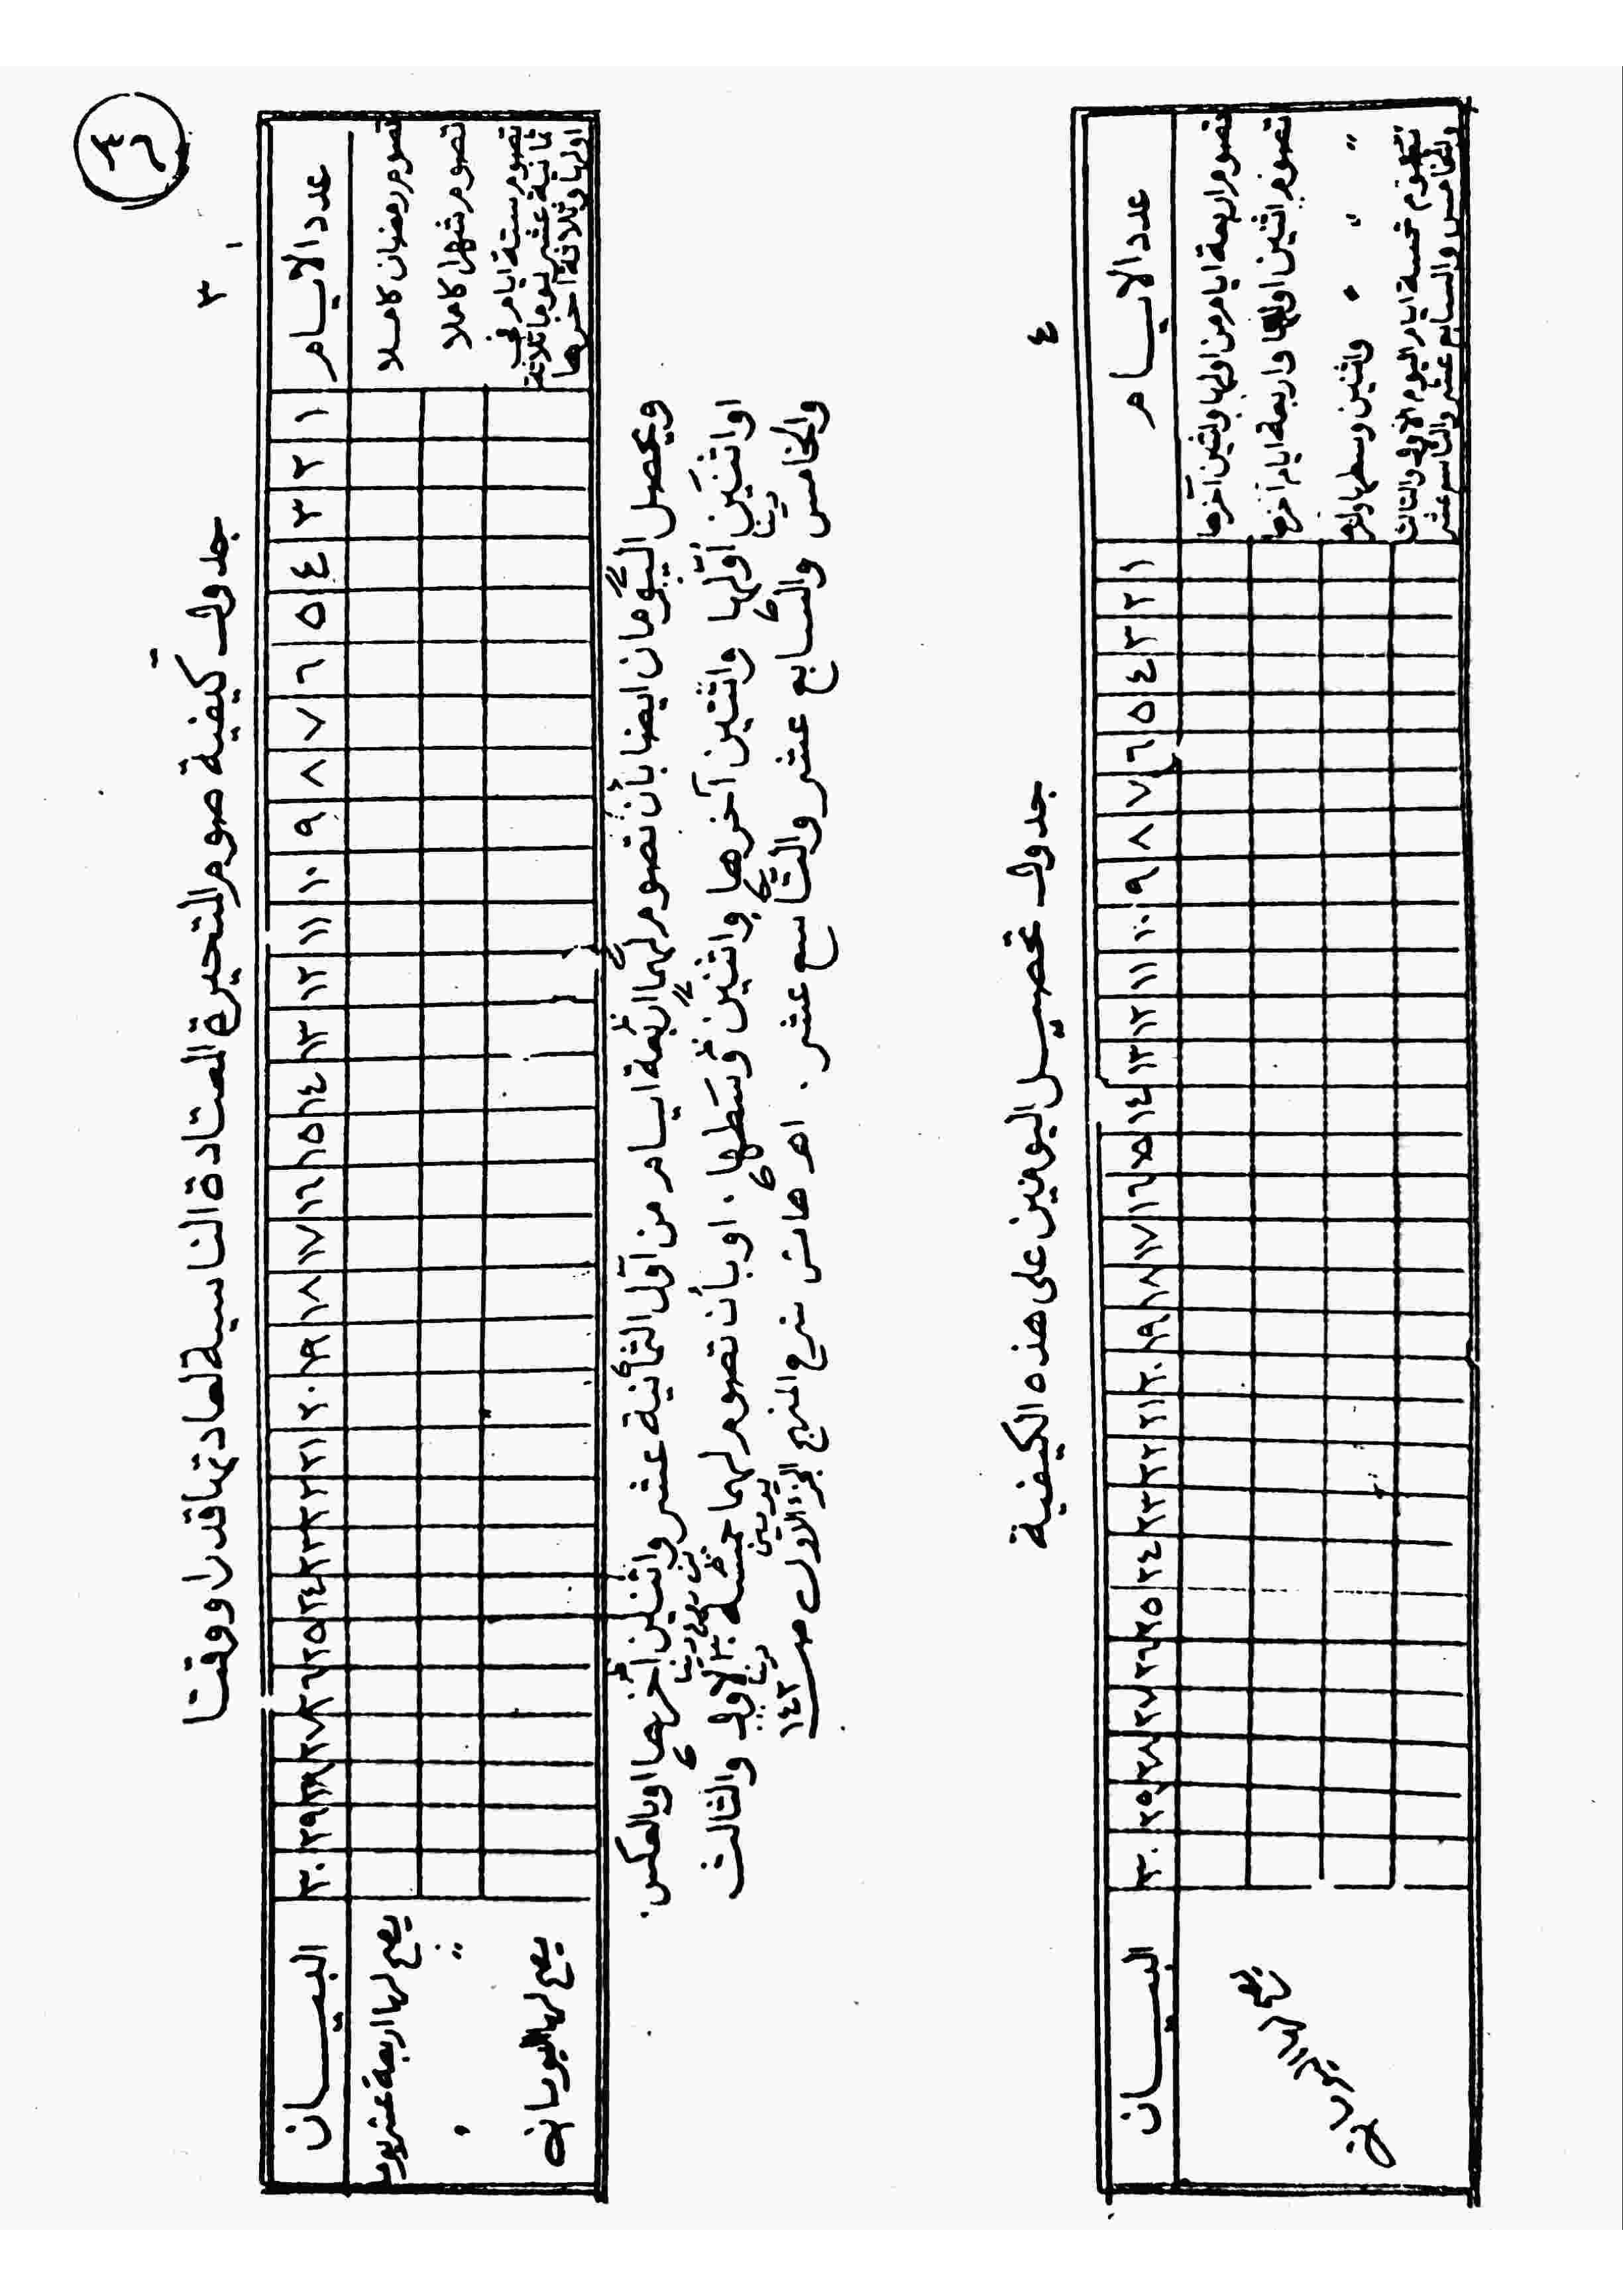 ٣
جدول كيفية صوم المتحيرة المعتادة الناسية لعادتها قدرا ووقتا
عدد الايام ١ ٢ ٣ ٤ ٥ ٦ ٧ ٨ ٩ ١٠ ١١ ١٢ ١٣ ١٤ ١٥ ١٦ ١٧ ١٨ ١٩ ٢٠ ٢١ ٢٢ ٢٣ ٢٤ ٢٥ ٢٦ ٢٧ ٢٨ ٢٩ ٣٠ البيان
تصوم رمضان كاملا يصح لها اربعة عشر يوما
تصوم شهرا كاملا " "
تصوم ستة ايام في
ثمانية عشر يوما ثلاثة
اولها وثلاثة آخرها
يصح لها اليومان
ويحصل اليومان ايضا بأن تصوم لهما اربعة ايام من اول الثمانية عشر واثنين آخرها او بالعكس.
او اثنين اولها واثنين آخرها واثنين وسطها. او بأن تصوم لهما خمسة الاول والثالث
والخامس والسابع عشر والتاسع عشر. اهـ هامش شرح المنهج الجزء الاول صـ ١٤٢
٤
جدول تحصيل اليومين على هذه الكيفية
عدد الايام ١ ٢ ٣ ٤ ٥ ٦ ٧ ٨ ٩ ١٠ ١١ ١٢ ١٣ ١٤ ١٥ ١٦ ١٧ ١٨ ١٩ ٢٠ ٢١ ٢٢ ٢٣ ٢٤ ٢٥ ٢٦ ٢٧ ٢٨ ٢٩ ٣٠ البيان
تصوم اربعة ايام من اولها واثنين آخرها
تصوم اثنين اولها واربعة ايام آخرها
" " " واثنين وسطها
تصوم خمسة ايام اليوم الاول والثالث
والخامس والسابع عشر والتاسع عشر
يصح لها